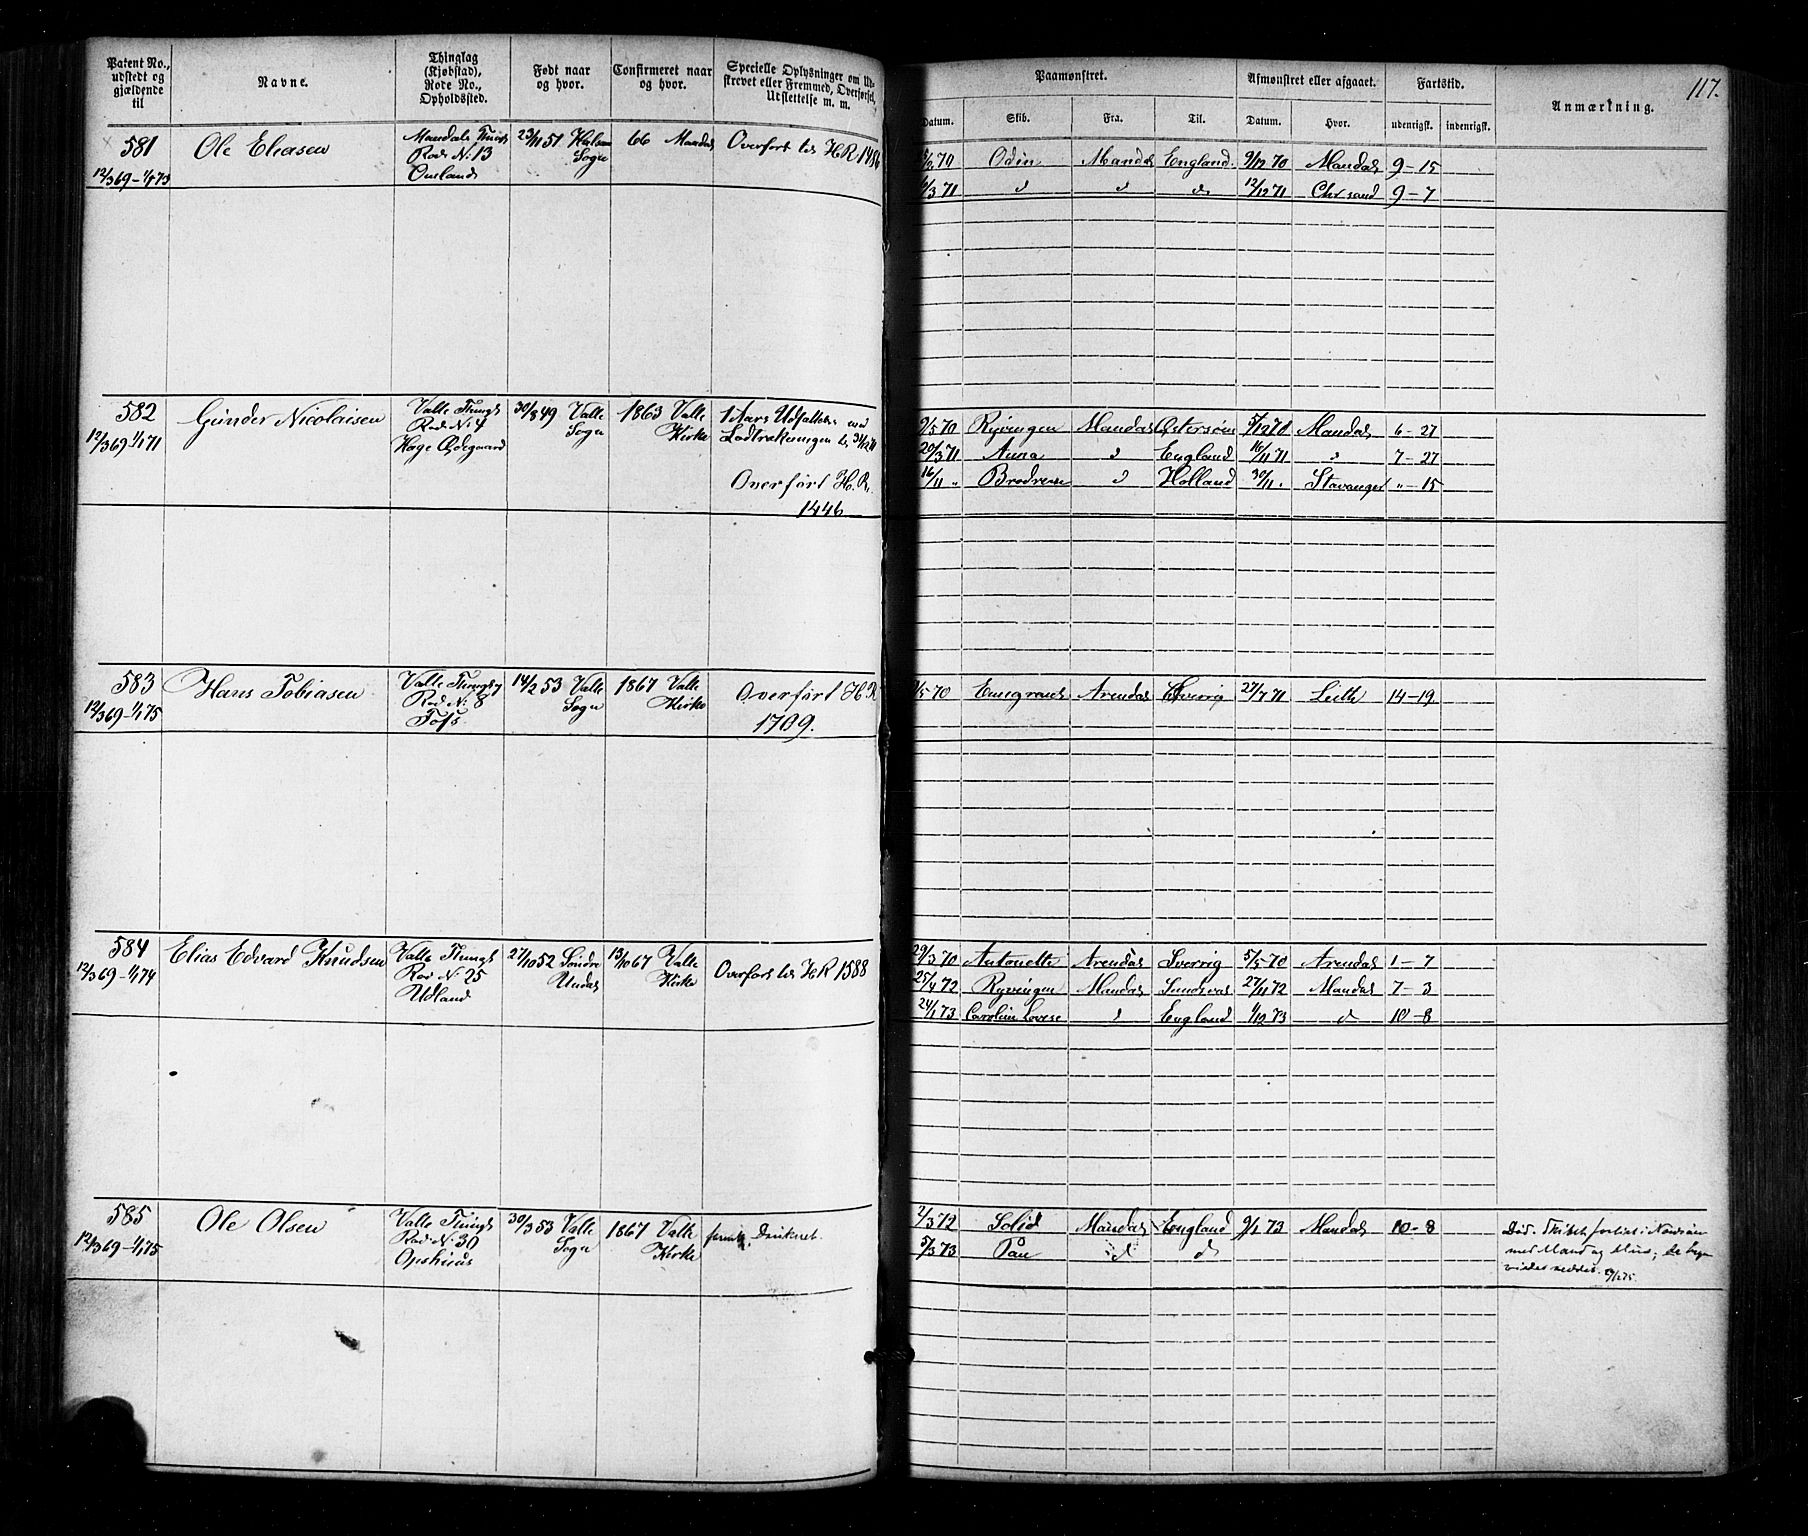 117.
Patent No., udstedt og gjældende til
Navne.
Thinglag (Kjøbstad), Rode No., Opholdssted.
Født naar og hvor.
Confirmeret naar og hvor.
Specielle Oplysninger om Udskrevet eller Fremmed, Overførsel, Udslettelse m. m.
Paamønstret.
Datum. Skib. Fra. Til.
Afmønstret eller afgaaet.
Datum. Hvor.
Fartstid.
udenrigsk. indenrigsk.
Anmærkning.
581
12/3 69 - 1/1 73
Ole Eliasen
Mandals Thingl
Rode N. 13
23/11 51
Sogn
66 Mandal
Overført til H R 1486
70 Odin Mandal England 9/12 70 Mandal 9 - 15
/3 71 d d d 12/12 71 Chrsand 9 - 7
582
12/3 69 - 1/1 71
Gunder Nicolaisen
Valle Thingl
Rode N. 4
Høge Ødegaard
30/8 49 Valle
Sogn
1863 Valle
Kirke
1 Aars Udsættelse ved
Lodtrækningen
Overført H. R.
1446
9/5 70 Ryvingen Mandal Østersøen 70 Mandal 6 - 27
20/3 71 Anna d England 16/11 71 " 7 - 27
16/11 " Brødrene d Holland 30/11 " Stavanger " - 15
583
12/3 69 - 1/1 75
Hans Tobiasen
Valle Thingl
Rode N. 8
14/2 53 Valle
Sogn
1867 Valle
Kirke
Overført H. R
1709.
/5 70 Arendal Sverrig 27/7 71 Leith 14 - 19
584
12/3 69 - 1/1 74
Elias Edvard Knudsen
Valle Thingl
Rode N. 25
Udland
27/10 52 Søndre
Undal
13/10 67 Valle
Kirke
Overført til H R 1588
29/3 70 Antonette Arendal Sverrig 5/5 70 Arendal 1 - 7
25/4 72 Ryvingen Mandal Sundsval 27/11 72 Mandal 7 - 3
24/1 73 Carolin Lovise d England 1/12 73 d 10 - 8
585
12/3 69 - 1/1 75
Ole Olsen
Valle Thingl
Rode N. 30
30/3 53 Valle
Sogn
1867 Valle
Kirke
Druknet.
2/3 72 Solid Mandal England 9/1 73 Mandal 10 - 8
5/3 73 Pan d d
Død. Skibet forlist i Nordsøen
med Mand og Muus;